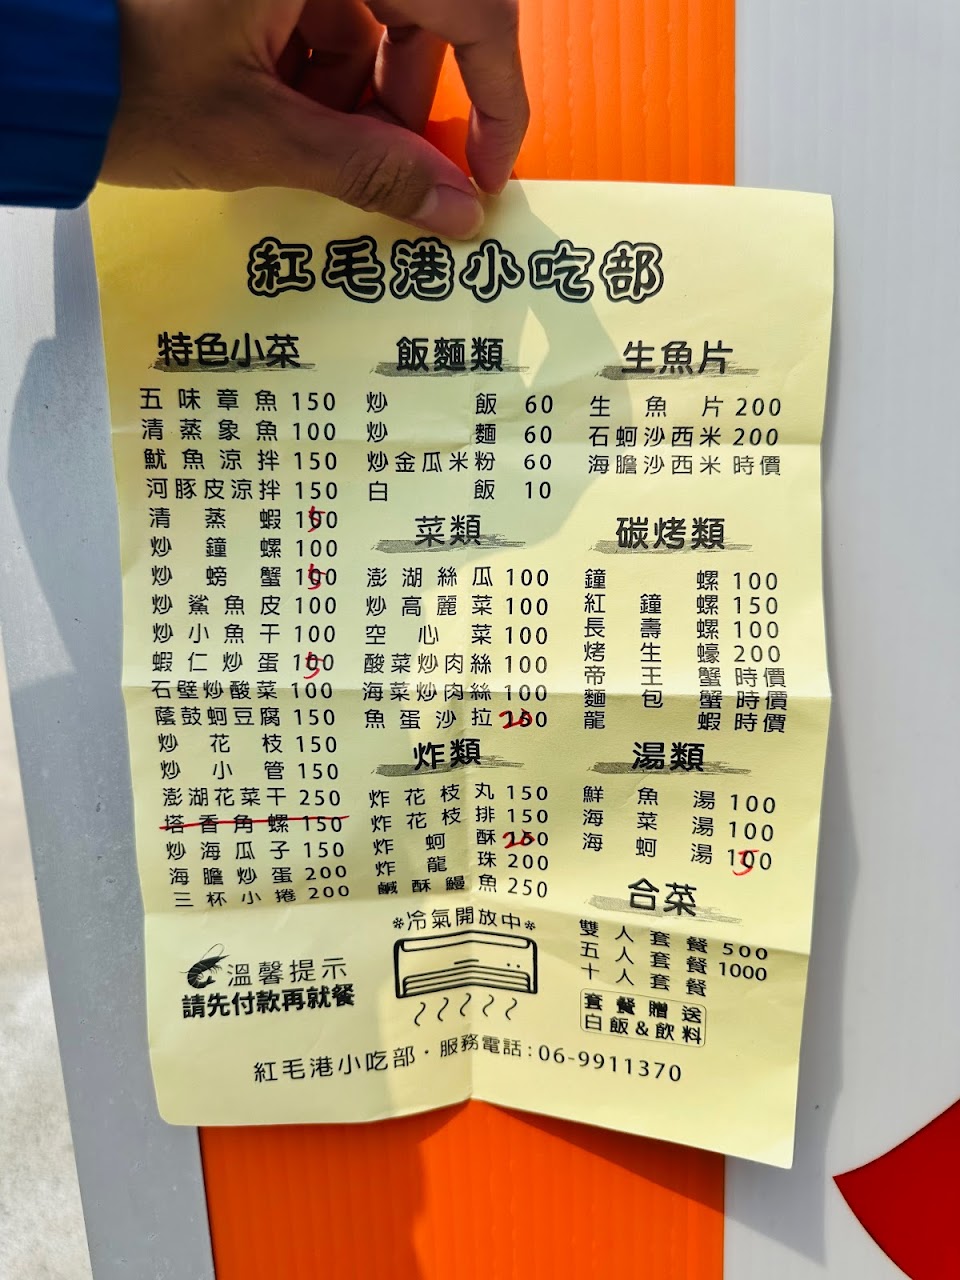 紅毛港小吃部
特色小菜
五味章魚 150
清蒸象魚 100
魷魚涼拌 150
河豚皮涼拌 150
清蒸蝦 150
炒鐘螺 100
炒螃蟹 150
炒鯊魚皮 100
炒小魚干 100
蝦仁炒蛋 150
石壁炒酸菜 100
蔭鼓蚵豆腐 150
炒花枝 150
炒小管 150
澎湖花菜干 250
塔香角螺 150
炒海瓜子 150
海膽炒蛋 200
三杯小捲 200
溫馨提示
請先付款再就餐
飯麵類
炒飯 60
炒麵 60
炒金瓜米粉 60
白飯 10
菜類
澎湖絲瓜 100
炒高麗菜 100
空心菜 100
酸菜炒肉絲 100
海菜炒肉絲 100
魚蛋沙拉 200
炸類
炸花枝丸 150
炸花枝排 150
炸蚵酥 200
炸龍珠 200
鹹酥鰻魚 250
*冷氣開放中*
生魚片
生魚片 200
石蚵沙西米 200
海膽沙西米 時價
碳烤類
鐘螺 100
紅鐘螺 150
長壽螺 100
烤生蠔 200
帝王蟹 時價
麵包蟹 時價
龍蝦 時價
湯類
鮮魚湯 100
海菜湯 100
海蚵湯 150
合菜
雙人套餐 500
五人套餐 1000
十人套餐
套餐贈送
白飯&飲料
紅毛港小吃部・服務電話:06-9911370